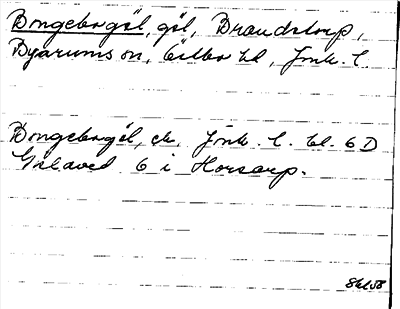 Bongebogöl, göl, Brandstorp,
Byarums sn, Östbo hd, Jönk. l.
Bongebogöl, ek. Jönk. l. bl. 6 D
Gislaved 6 i Horsarp.